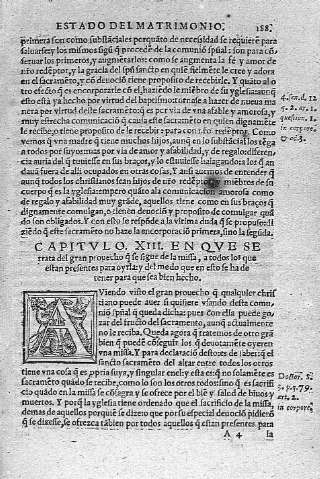 ESTADO DEL MATRIMONIO. 188.
primera son como substãciales perquãto de necessidad se requierẽ para
saluarse, y los mismos sigũ q̃ procedẽ de la comuniõ spũal: son para cõ
seruar los primeros, y augmẽtarlos: como se augmenta la fe y amor de
nr̃o redẽptor, y la gracia del spũ sancto en quiẽ fielmẽte le cree y adora
en el sacramẽto, y cõ deuociõ tiene proposito de recebirle. Y quãto al o
tro efecto q̃ es encorporarse cõ el, haziẽdo le miẽbro de su yglesia: aunq̃
esto està ya hecho por virtud del baptismo: tornase a hazer de nueua ma
nera por virtud deste sacramẽto: q̃ es por via de vna afable y amorosa, y
muy estrecha comunicaciõ q̃ causa este sacramẽto en quien dignamẽte
le recibe, o tiene proposito de le recebir: para con nr̃o redẽptor. Como
vemos q̃ vna madre tiene muchos hijos, aunq̃ en lo substãcial los tẽga
a todos por suyos: mas por via de amor y afabilidad, y de regalo differen
cia auria del q̃ tuuiesse en sus braços, y lo estuuiesse halagando a los q̃ an
dauã fuera de alli ocupados en otras cosas. Y assi auemos de entender q̃
aunq̃ todos los christianos sean hijos de nr̃o redẽptor y miẽbros de su
cuerpo q̃ es la yglesia: empero quãto a la comunicacion amorosa como
de regalo y afabilidad muy grãde, aquellos tiene como en sus braços q̃
dignamente comulgan, o tienẽ deuociõ y proposito de comulgar quã
do son obligados. Y con esto se respõde a la vltima duda q̃ se propuso: di
ziẽdo q̃ de esta suerte no haze la encorporaciõ primera, sino la segunda.
CAPITVLO. XIII. EN QVE SE
trata del gran prouecho q̃ se sigue de la missa, a todos los que
estan presentes para oyrla: y del modo que en esto se ha de
tener para que sea bien hecho.
AViendo visto el gran prouecho q̃ qualquier chri
stiano puede auer si quisiere vsando desta comu
niõ spũal q̃ queda dicha: pues con ella puede go
zar del fructo del sacramento, aunq̃ actualmente
no le reciba. Queda agora q̃ tratemos de otro grã
bien q̃ puedẽ cõseguir los q̃ deuotamẽte oyerẽ
vna missa. Y para declaraciõ desto es de saber: q̃ el
sancto sacramẽto del altar entre todos los otros
tiene vna cosa q̃ es ppria suya, y singular en el: y esta es: q̃ no solamẽte es
sacramẽto quãdo se recibe, como lo son los otros todos: sino q̃ es sacrifi
cio quãdo en la missa se cõsagra y se ofrece por el biẽ y salud de biuos y
muertos. Y porq̃ la yglesia tiene ordenado que el sacrificio de la missa,
demas de aquellos porquiẽ se dize: o por su especial deuociõ pidierõ
q̃ se dixesse, se ofrezca tãbien por todos aquellos q̃ estan presentes para
A 4 la
4. sen. d. 12